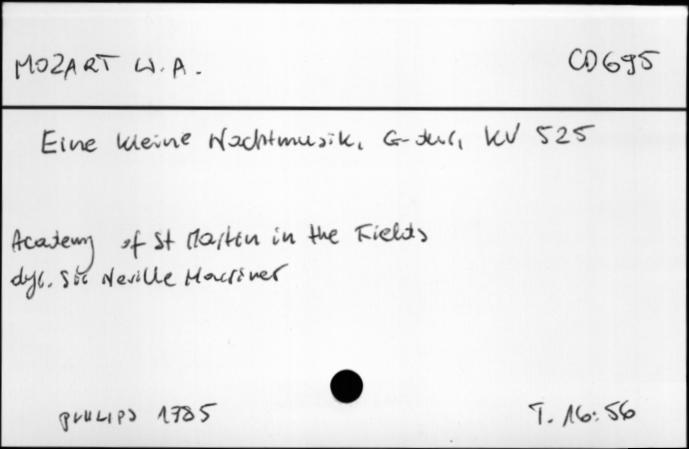 MOZART W.A.
CD695
Eine kleine Nachtmusik, G-dur, KV 525
Academy of St Martin in the Fields
dyr. Sir Neville Marriner
PHILIPS 1785
T. 16:56